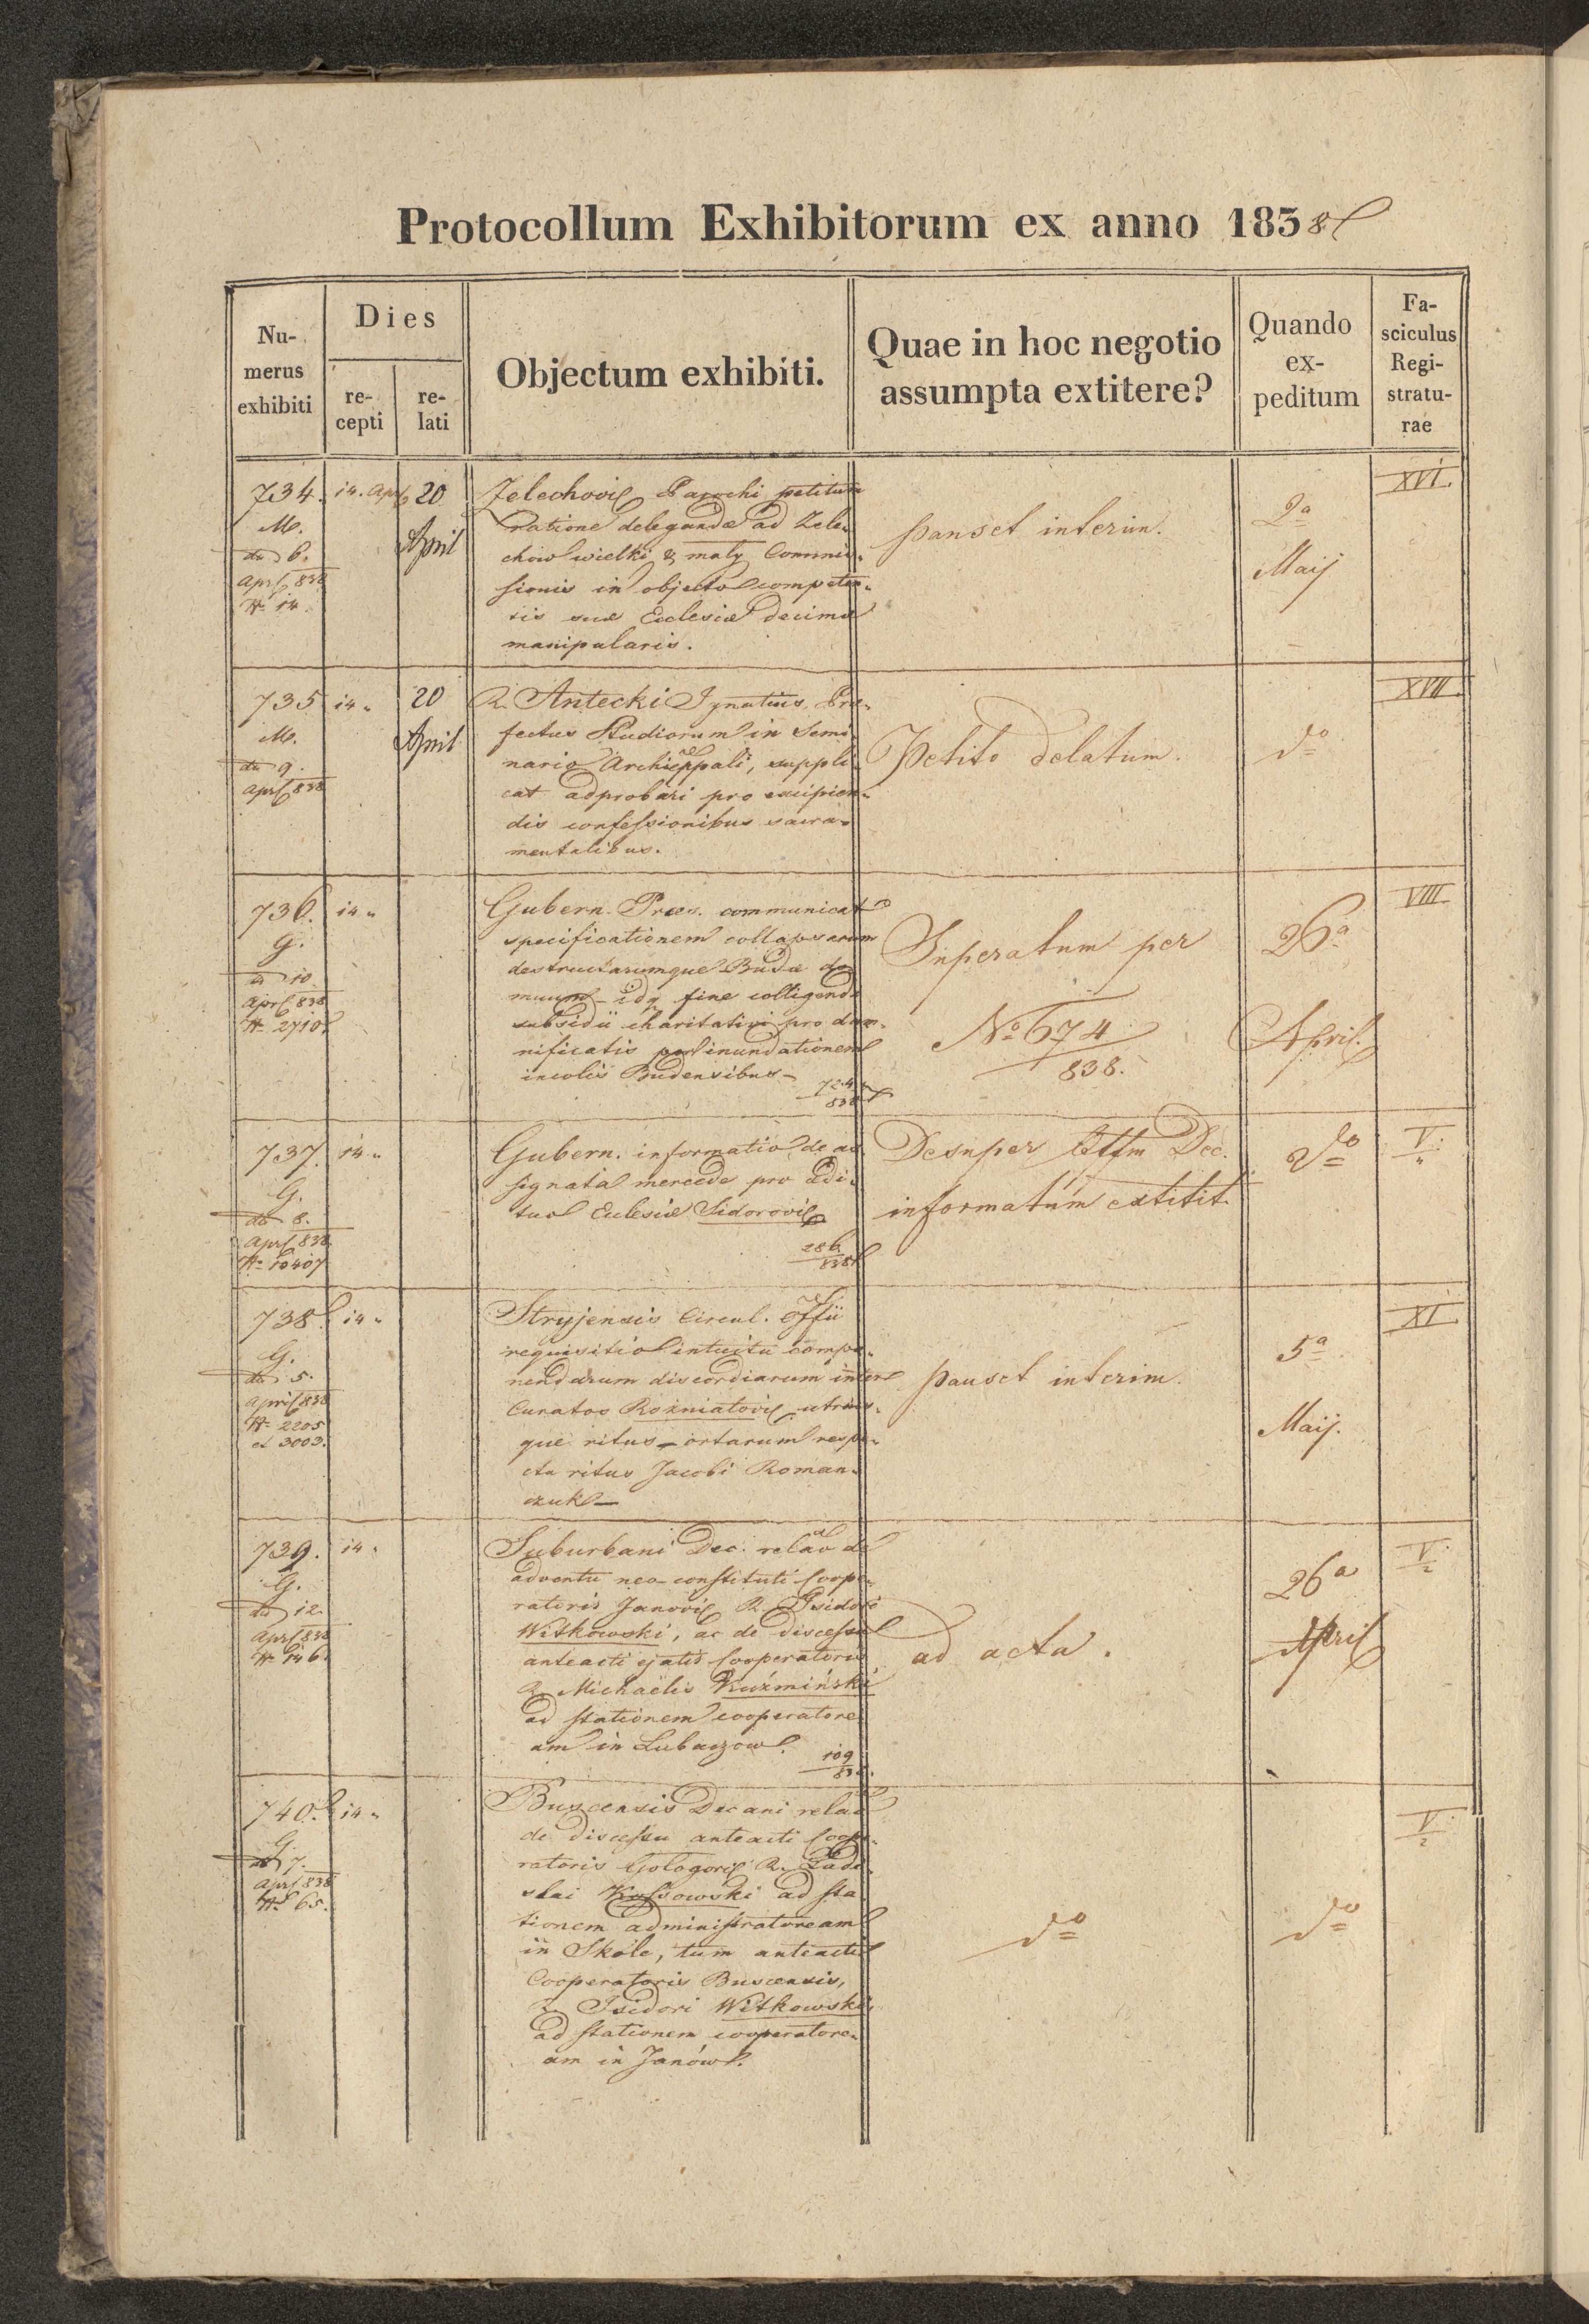 Protocollum Exhibitorum ex anno 1838
Nu-
merus
exhibiti
Dies
re-
cepti
re-
lati
Objectum exhibiti.
Quae in hoc negotio
assumpta extitere?
Quando
ex-
peditum
Fa-
sciculus
Regi-
stratu-
rae
734.
M.
dto 6.
Apr. 838
N. 14.
14. Apr.
20
April
Zelechovien. Parochi petitum
ratione delegandae ad Zele-
chow wielki & maly Commis-
sionis in objecto competen-
tis suae Ecclesiae decimae
manipularis.
pauset interim.
2a
Maij
XVI.
735
M.
dto 9.
Apr. 838
14 "
20
April
R. Antecki Ignatius, Prae-
fectus Studiorum in Semi-
nario Archieppali, suppli-
cat adprobari pro excipien-
dis confessionibus sacra-
mentalibus.
Petito delatum.
do
XVII.
736.
G.
dto 10.
Apr. 838
N. 2710
14 "
Gubern. Praes. communicat
specificationem collapsarum
destructarumque Budae do-
muum – idq fine colligendi
subsidii charitativi pro dam-
nificatis per inundationem
incolis Budensibus –
724
838
Superatum per
No 674
838.
26a
April.
VIII.
737.
G.
dto 8.
Apr. 838
N. 10407
14 "
Gubern. informatio de as-
signata mercede pro aedi-
tuo Eclesiae Sidorovien
286
838
Desuper Attm Dec.
informatum extitit.
do
V.
738
G.
dto 5.
April 838
N. 2205
et 3003.
14 "
Stryjensis Circul. Offii
requisitio intuitu compo-
nendarum discordiarum inter
Curatos Rozniatovien utrius-
que ritus – ortarum respe-
ctu ritus Jacobi Roman-
czuk –
pauset interim.
5a
Maij.
XI.
739.
G.
dto 12.
Apr. 838
N. 146
14 "
Suburbani Dec. relao de
adventu neo-constituti Coope-
ratoris Janovien R. Isidori
Witkowski, ac de discessu
anteacti ejatis Cooperatoris
R. Michaelis Kuźmiński
ad stationem cooperatore-
am in Lubaczow.
109
838.
ad acta.
26a
April
V.
2
740.
G.
dto 7.
Apr. 838
N. 65.
14 "
Buscensis Decani relao
de discessu anteacti Coope-
ratoris Gologorien R. Ladi-
slai Kossowski ad sta-
tionem administratoream
in Skole, tum anteacti
Cooperatoris Buscensis,
R. Isidori Witkowski,
ad stationem cooperatore-
am in Janów.
do
do
V.
2